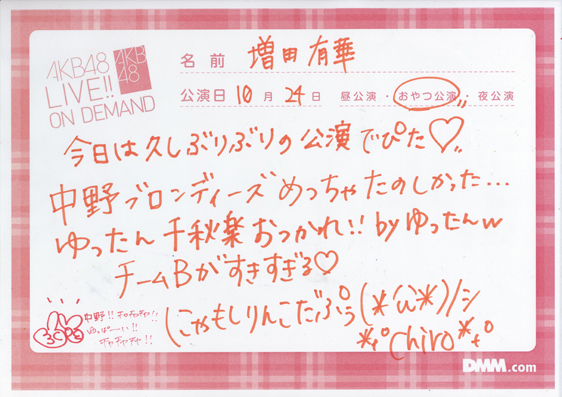 AKB48
LIVE!!
ON DEMAND
AKB
48
名前 増田有華
公演日 10月24日 昼公演・おやつ公演・夜公演
今日は久しぶりぶりの公演でぴた♡
中野ブロンディーズめっちゃたのしかった…
ゆったん千秋楽おつかれ!! byゆったんw
チームBがすきすぎる♡
中野!! チャチャチャ!!
チャチャチャ!!
にゃもしりんこだぷぅ(*'ω'*)/シ
*+°Chiro*+°
DMM.com